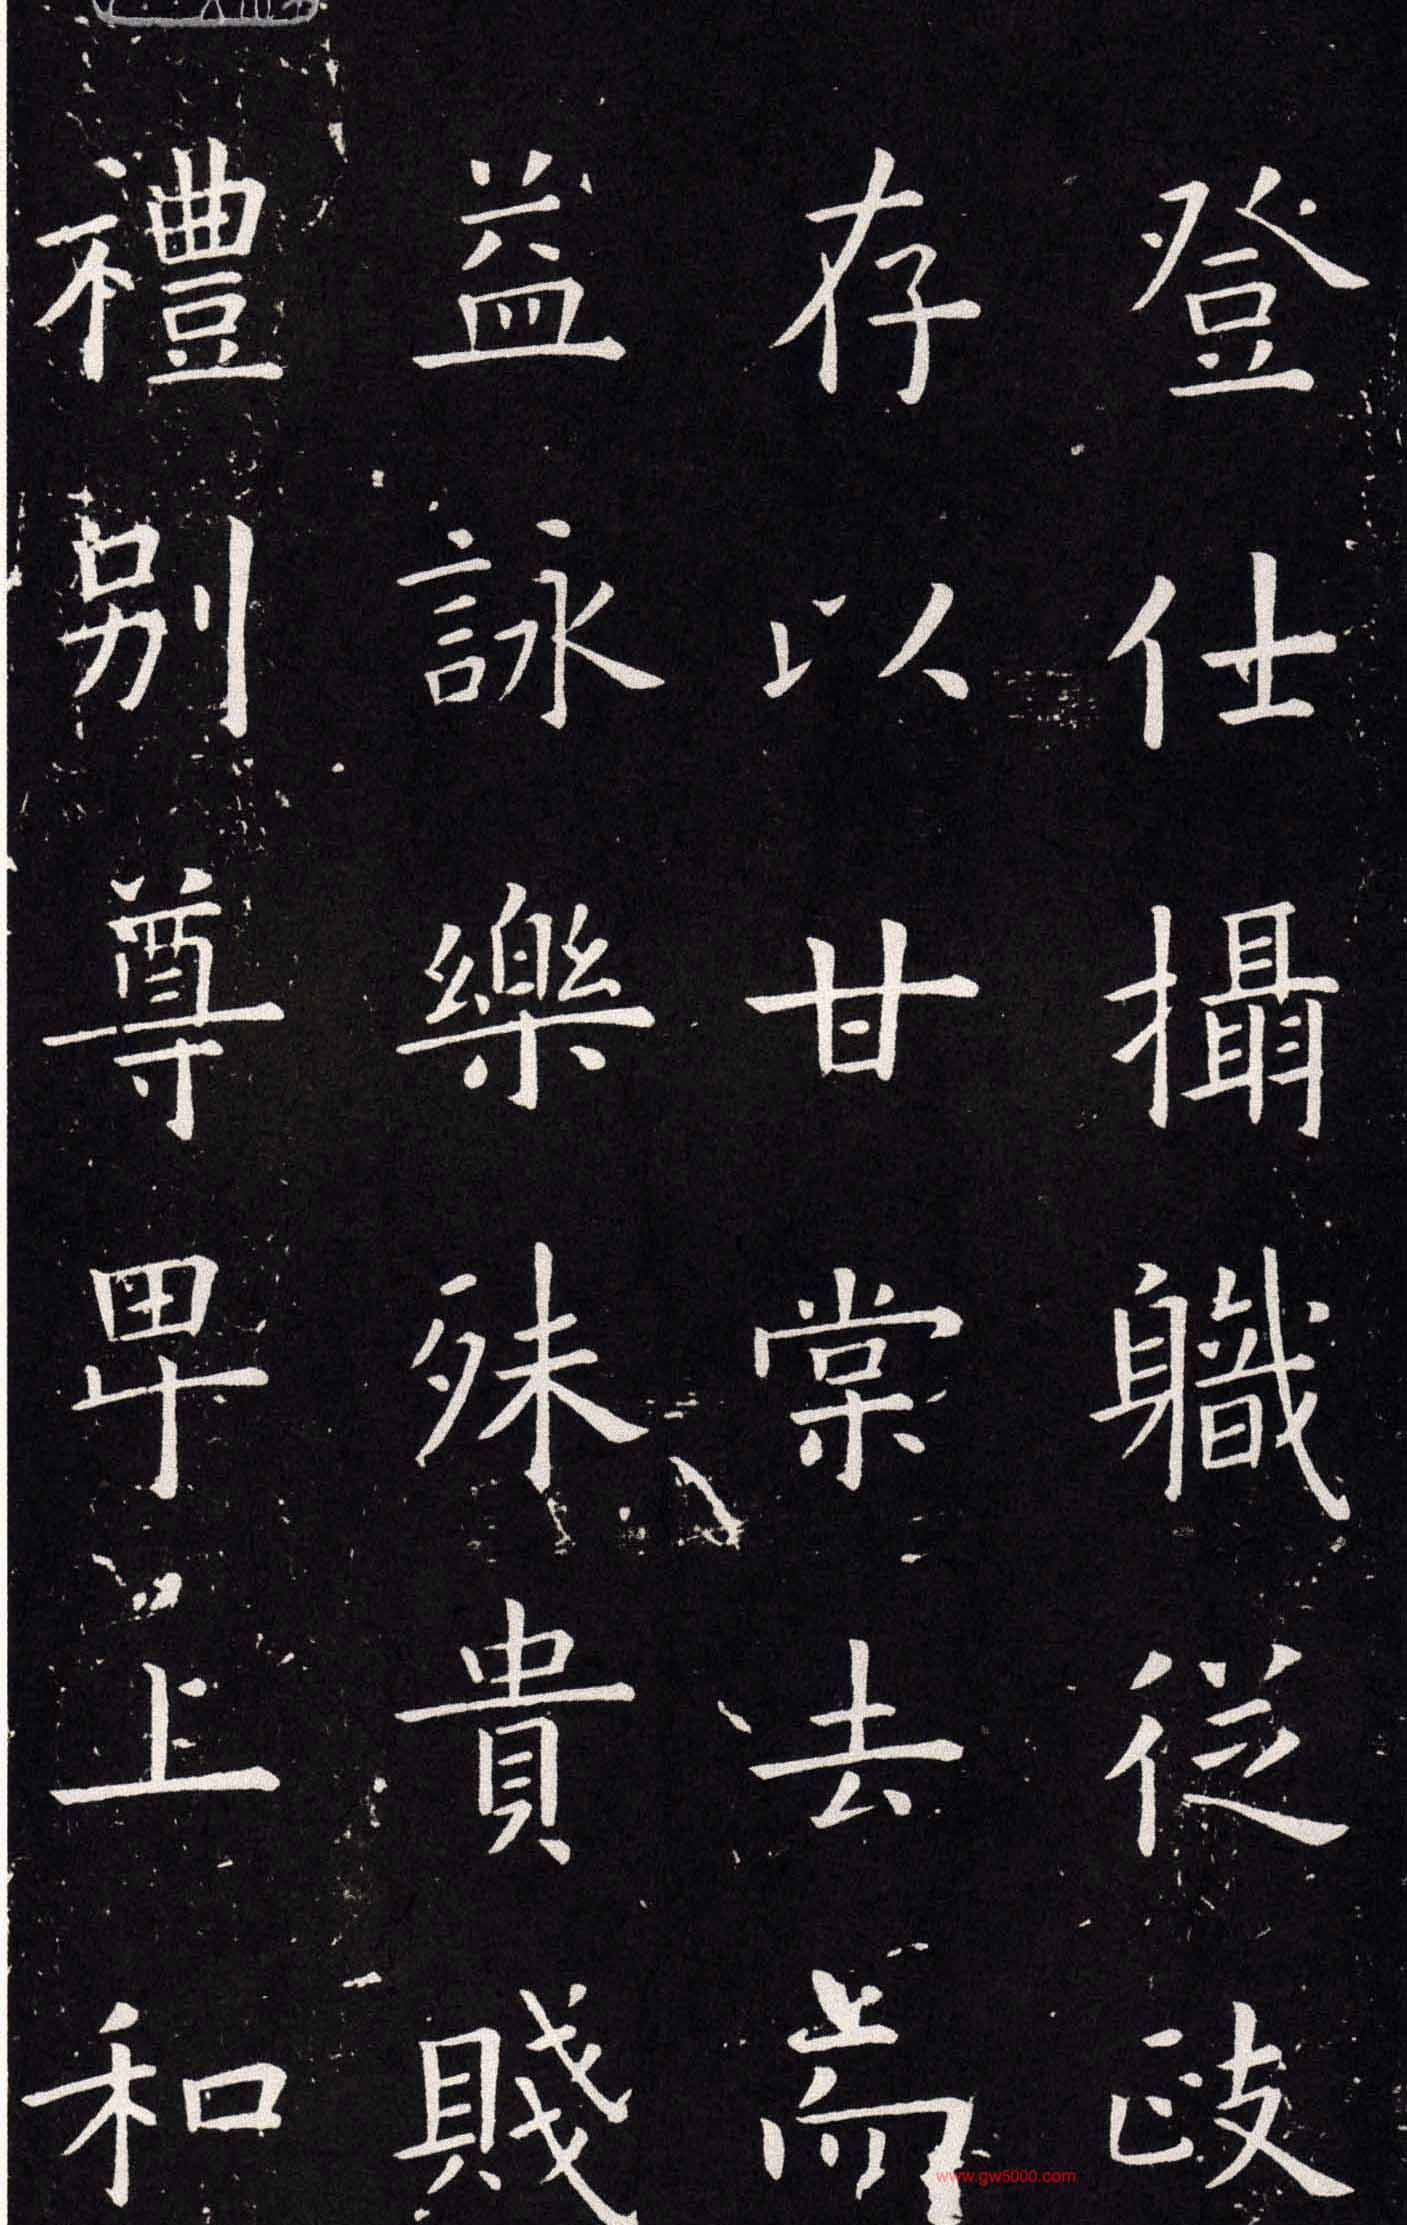 登仕攝職從政
存以甘棠去而
益詠樂殊貴賤
禮別尊卑上和
www.gw5000.com